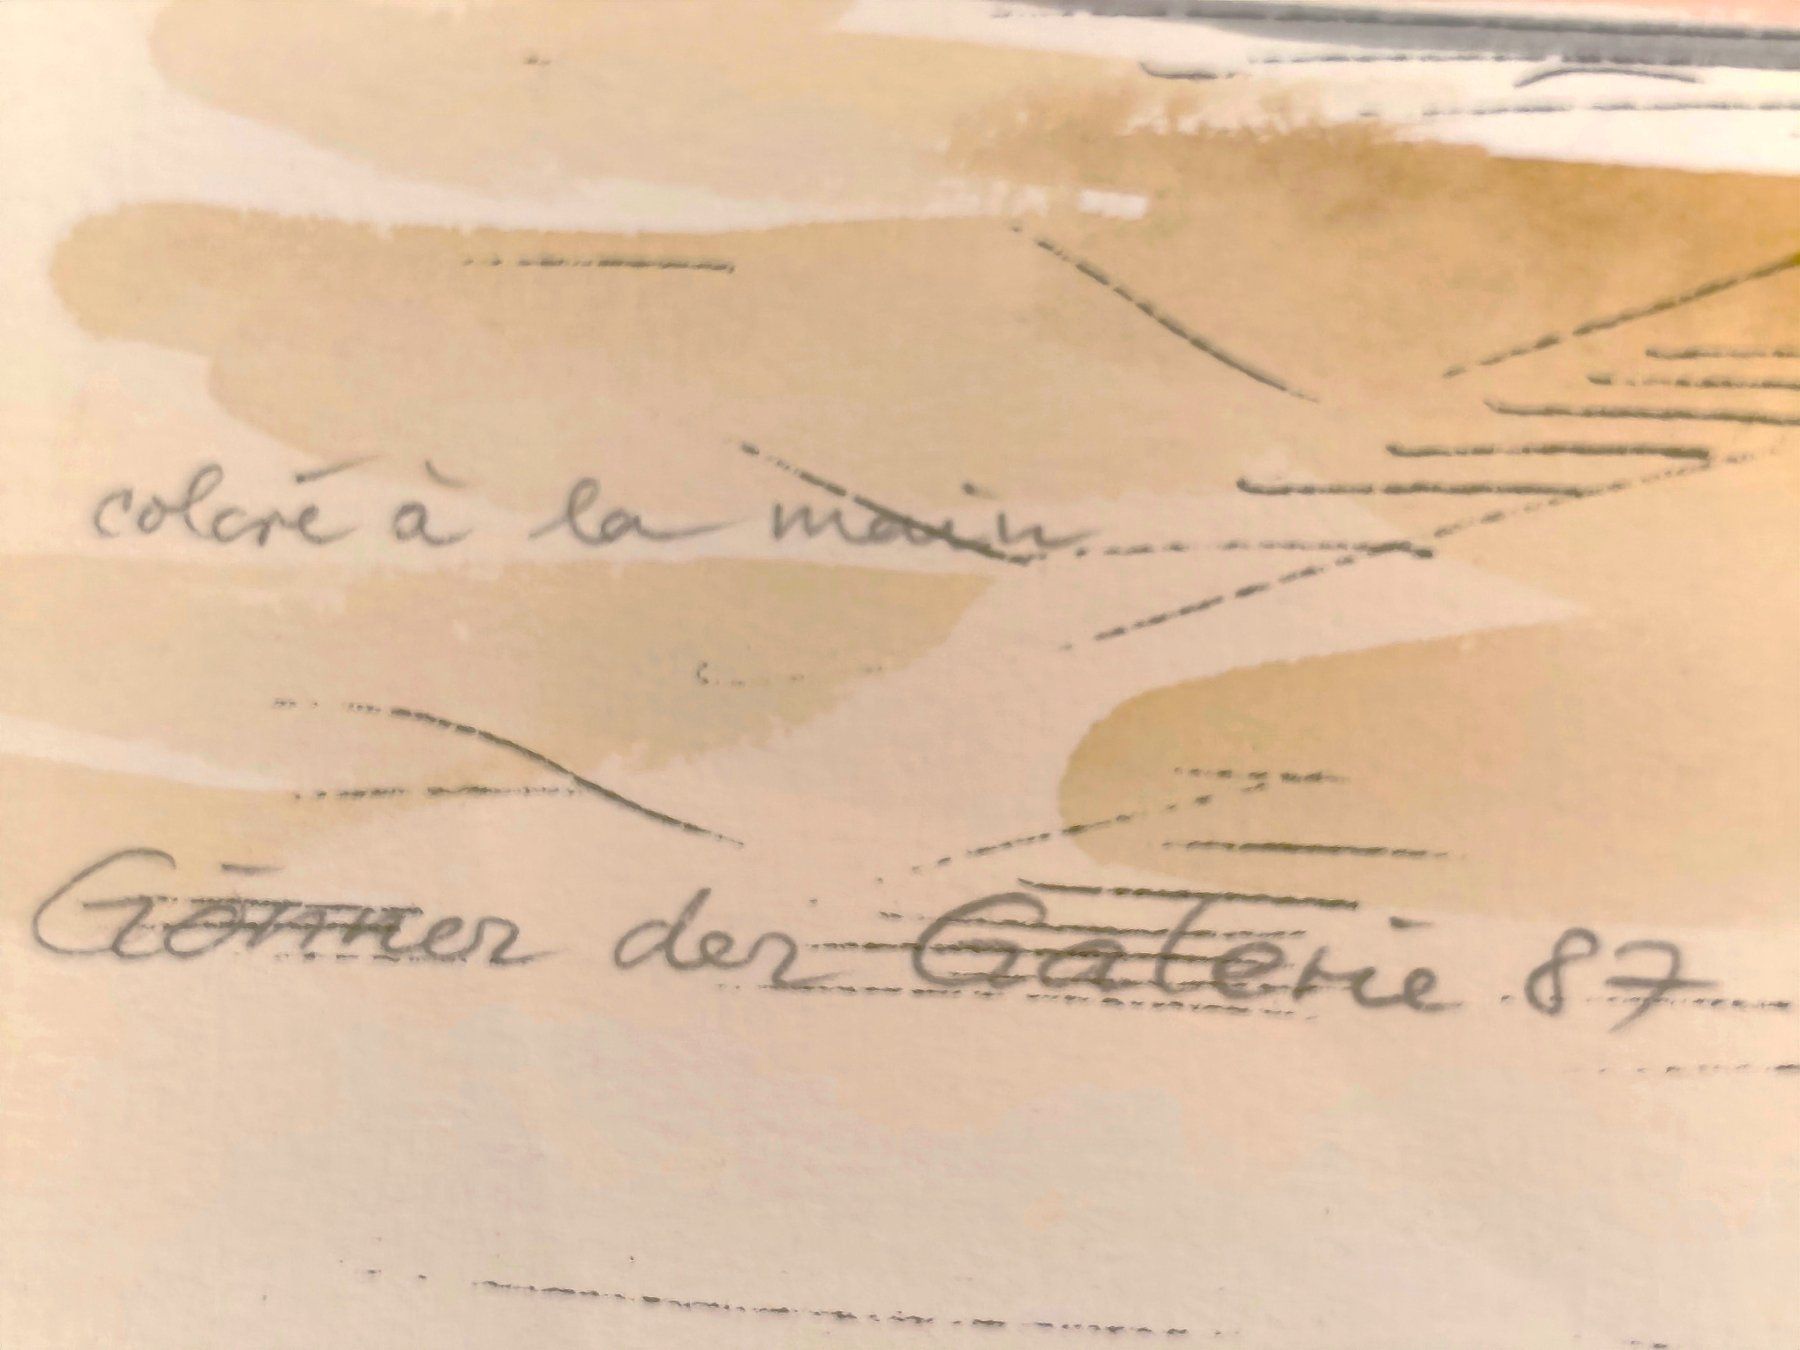 coloré à la main
Gönner der Galerie 87